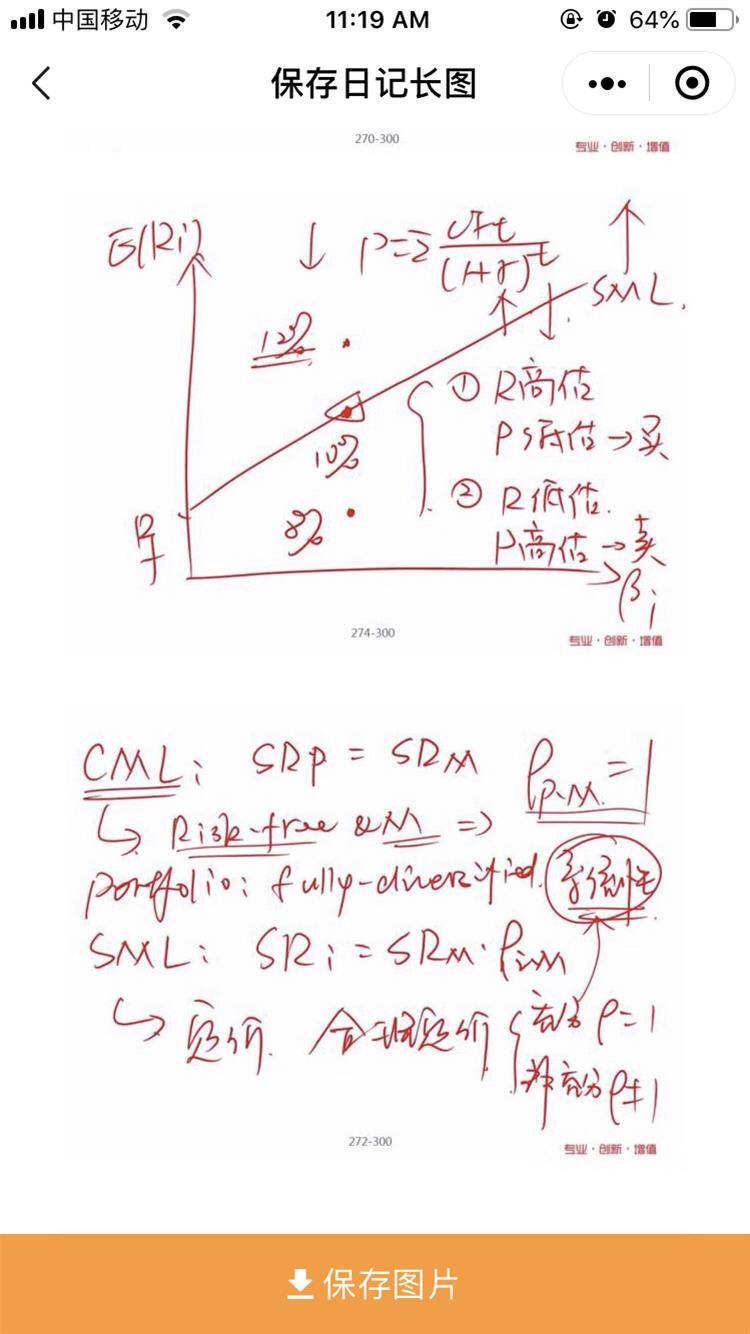 中国移动 11:19 AM 64%
保存日记长图
270-300
专业·创新·增值
E(Ri) ↓ P=Σ CFt/(1+r)^t ↑
SML.
↑ ↓
12%
① R高估
P低估→买
10%
② R低估.
8%
P高估→卖
Rf
βi
274-300
专业·创新·增值
CML: SRp = SRM ρp.M=1
↳ Risk-free & M ⇒
portfolio: fully-diversified.
SML: SRi = SRM·ρi,M
↳ 定价. 合理定价 { 充分 ρ=1
非充分 ρ≠1
272-300
专业·创新·增值
保存图片